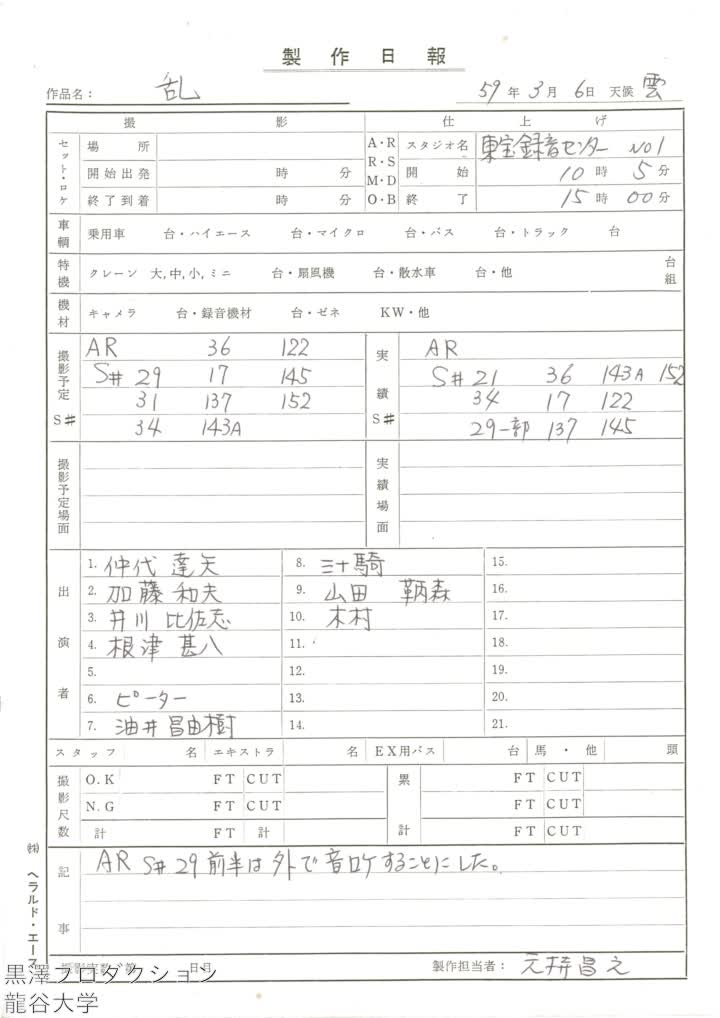 製作日報
作品名： 乱 59年3月6日 天候 雲
撮影 仕上げ
セット・ロケ 場所 A・R R・S M・D O・B スタジオ名 東宝録音センター NO1
開始出発 時 分 開始 10時5分
終了到着 時 分 終了 15時00分
車輌 乗用車 台・ハイエース 台・マイクロ 台・バス 台・トラック 台
特機 クレーン 大,中,小,ミニ 台・扇風機 台・散水車 台・他 台組
機材 キャメラ 台・録音機材 台・ゼネ KW・他
撮影予定 S# AR 36 122
S# 29 17 145
31 137 152
34 143A
実績 S# AR
S# 21 36 143A 152
34 17 122
29一部 137 145
撮影予定場面 実績場面
出演者
1. 仲代 達矢 8. 三十騎 15.
2. 加藤 和夫 9. 山田 鞆森 16.
3. 井川 比佐志 10. 木村 17.
4. 根津 甚八 11. 18.
5. 12. 19.
6. ピーター 13. 20.
7. 油井昌由樹 14. 21.
スタッフ 名 エキストラ 名 EX用バス 台 馬・他 頭
撮影尺数 O.K FT CUT 累計 FT CUT
N.G FT CUT FT CUT
計 FT 計 FT CUT
記事 AR S#29前半は外で音ロケすることにした。
㈱ ヘラルド・エース
撮影実数 第 日目 製作担当者： 元持昌之
黒澤プロダクション
龍谷大学